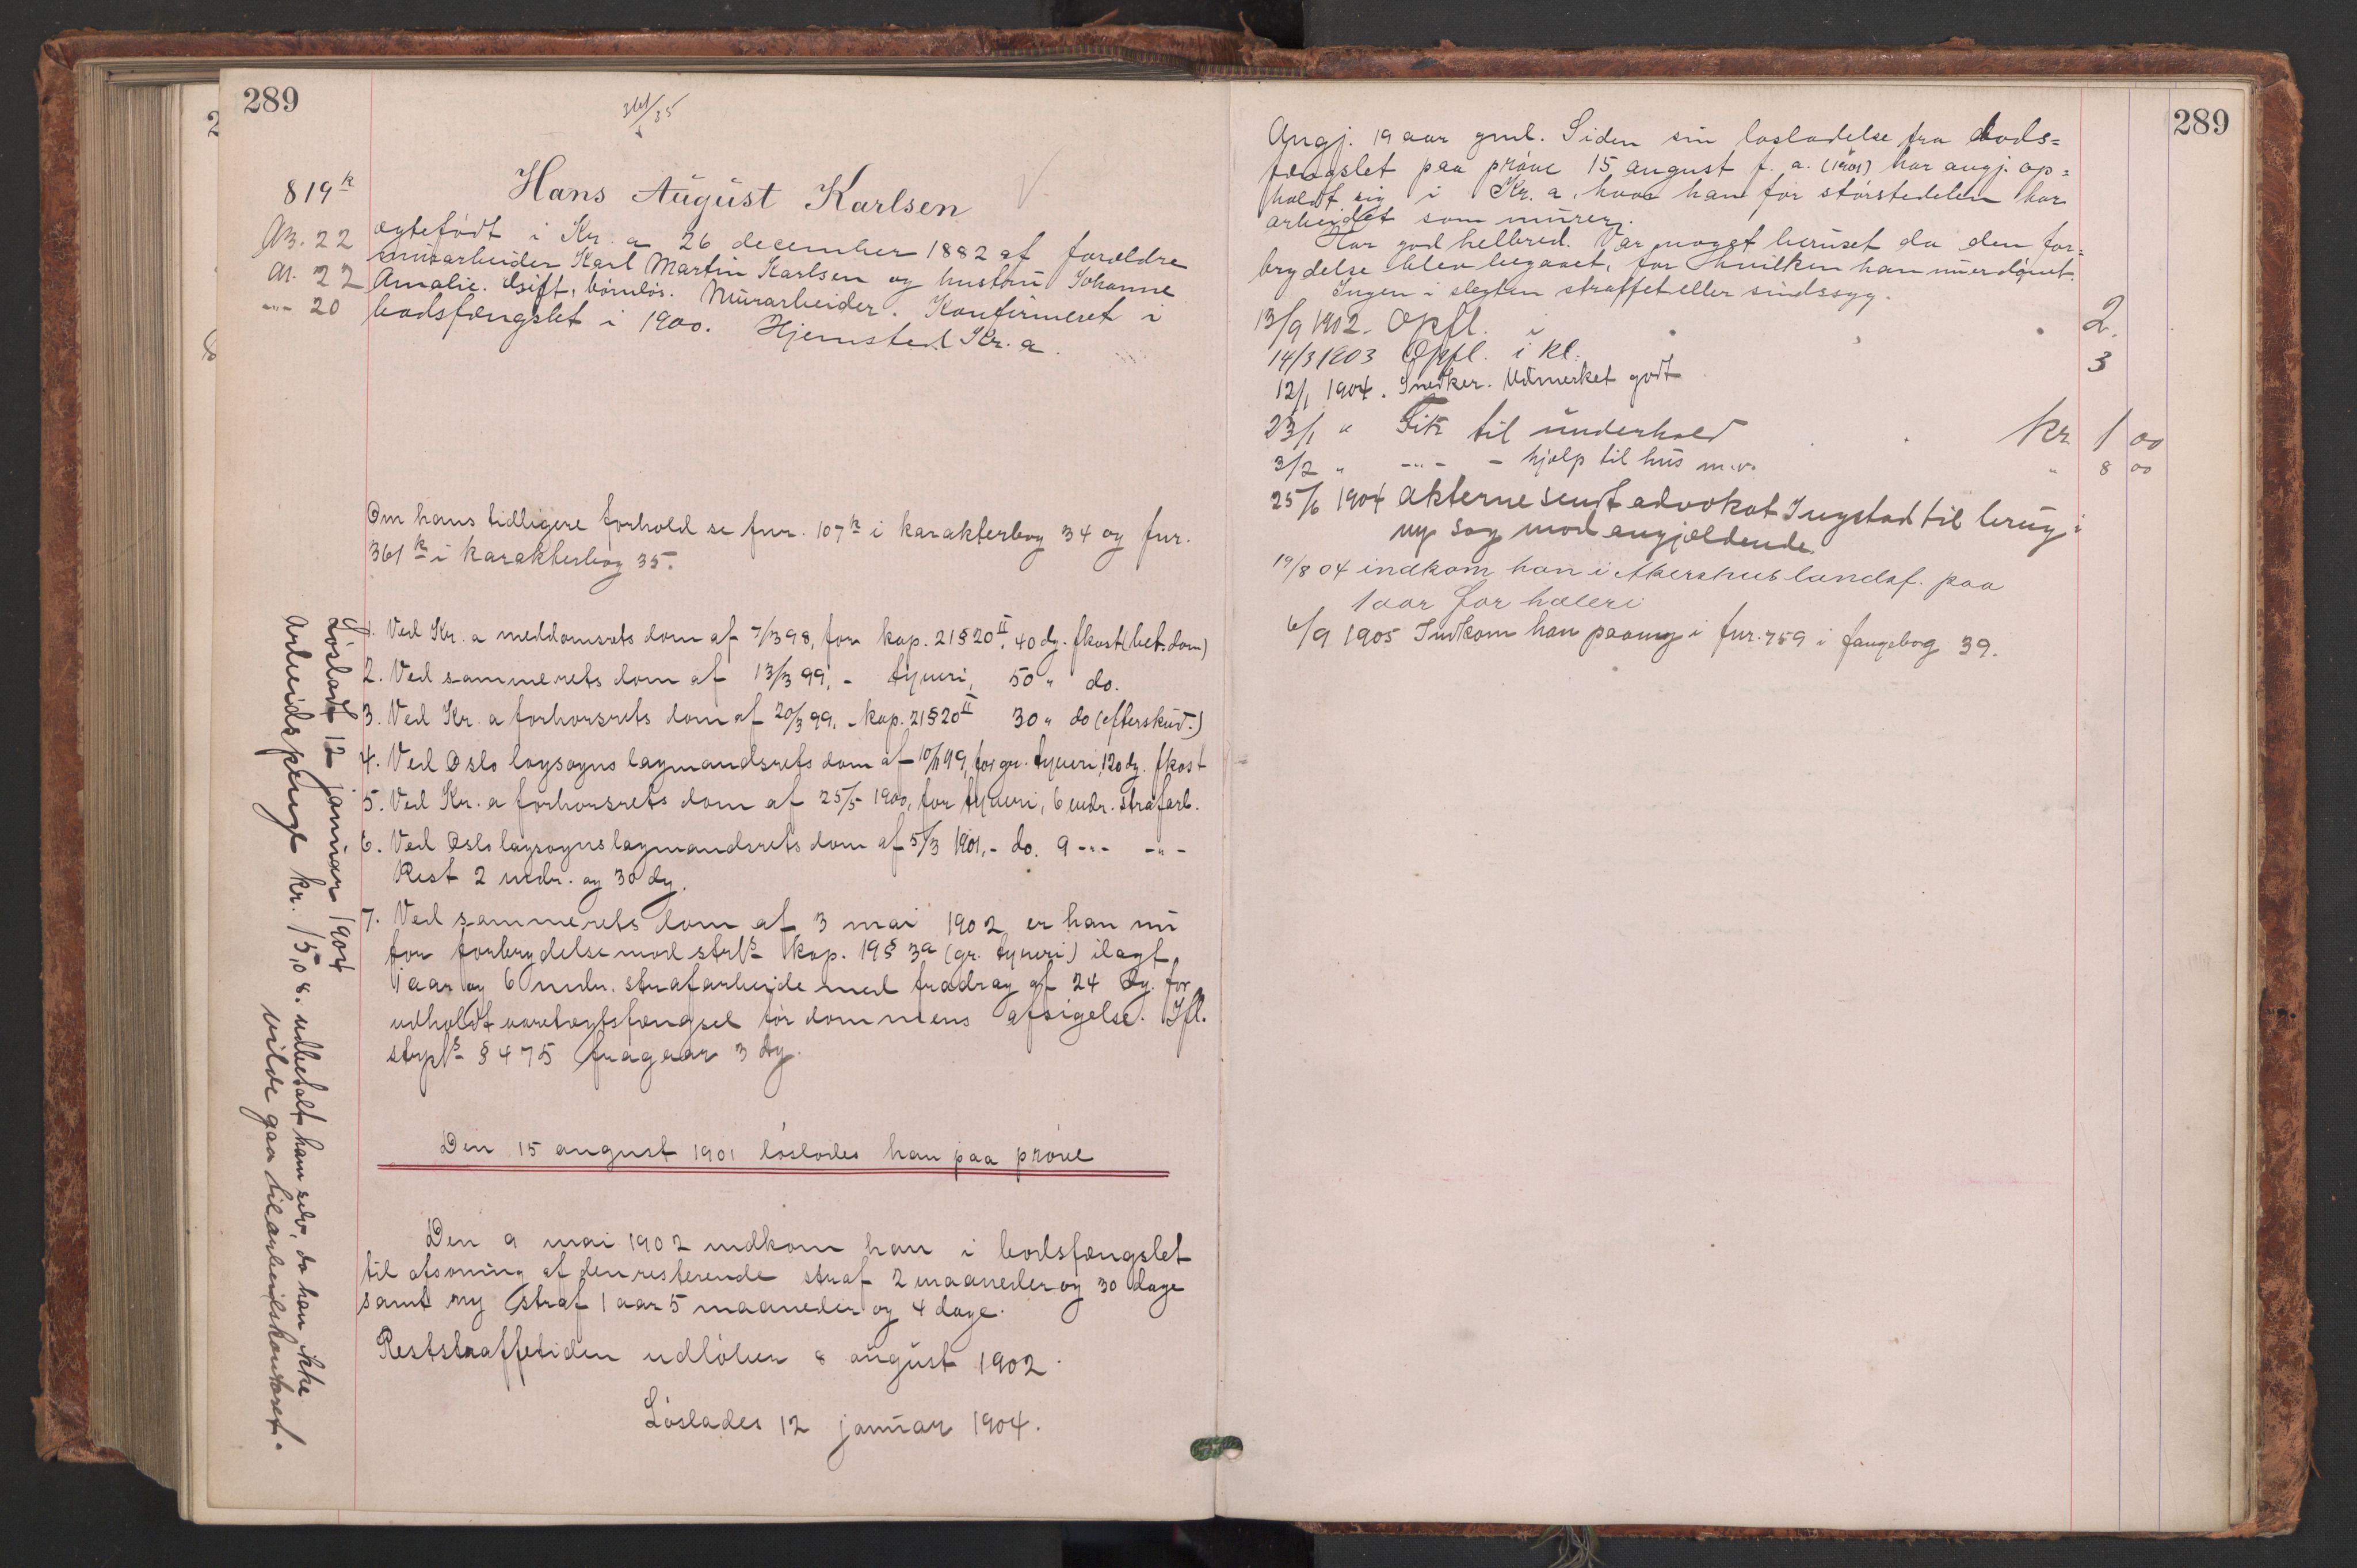 289
361/35
819 k
Hans August Karlsen
M. 22
M. 22
-"- 20
egtefødt i Kr.a 26 december 1882 af forældre
murarbeider Karl Martin Karlsen og hustru Johanne
Amalie. Gift, børnløs. Murarbeider. Konfirmeret i
bodsfængslet i 1900. Hjemsted Kr.a.
Om hans tidligere forhold se fnr. 107 k i karakterbog 34 og fnr.
361 k i karakterbog 35.
1. Ved Kr.a meddomsrets dom af 7/3 98, for kap. 21 § 20 II, 40 dg. fkost (bet. dom)
2. Ved sammerets dom af 13/3 99, - tyveri, 50 " do.
3. Ved Kr.a forhørsrets dom af 20/3 99, - kap. 21 § 20 II 30 " do (efterskud.)
4. Ved Oslo lagsogns lagmandsrets dom af 10/11 99, for gr. tyveri, 120 dg. fkost
5. Ved Kr.a forhørsrets dom af 25/5 1900, for tyveri, 6 mdr. strafarb.
6. Ved Oslo lagsogns lagmandsrets dom af 5/3 1901, - do. 9 -"- -"-
Rest 2 mdr. og 30 dg.
7. Ved sammerets dom af 3 mai 1902 er han nu
for forbrydelse mod strl's kap. 19 § 3a (gr. tyveri) ilagt
1 aar og 6 mdr. strafarbeide med fradrag af 24 dg. for
udholdt varetægtsfængsel før dommens afsigelse. Ifl.
strpl's § 475 fragaar 3 dg.
Den 15 august 1901 løslodes han paa prøve
Den 9 mai 1902 indkom han i bodsfængslet
til afsoning af den resterende straf 2 maaneder og 30 dage
samt ny straf 1 aar 5 maaneder og 4 dage.
Reststraffetiden udløber 8 august 1902.
Løslades 12 januar 1904.
Løsladt 12 januar 1904
Arbeidspenge kr. 15,08. udbetalt ham selv, da han ikke
vilde gaa til arbeidskontoret.
289
Angj. 19 aar gml. Siden sin løsladelse fra bods=
fængslet paa prøve 15 august f. a. (1901) har angj. op=
holdt sig i Kr.a, hvor han for størstedelen har
arbeidet som murer.
Har god helbred. Var noget beruset da den for=
brydelse blev begaaet, for hvilken han nu er dømt.
Ingen i slegten straffet eller sindssyg.
13/9 1902. Opfl. i 2.
14/3 1903 Opfl. i kl. 3
12/1 1904. Snedker. Udmerket godt
23/1 " Fik til underhold kr 1 00
3/2 " -"- - hjælp til hus m.v. " 8 00
25/6 1904 akterne sendt advokat Ingstad til brug i
ny sag mod angjældende.
19/8 04 indkom han i Akershus landsf. paa
1 aar for hæleri
6/9 1905 Indkom han paany i fnr. 759 i fangebog 39.